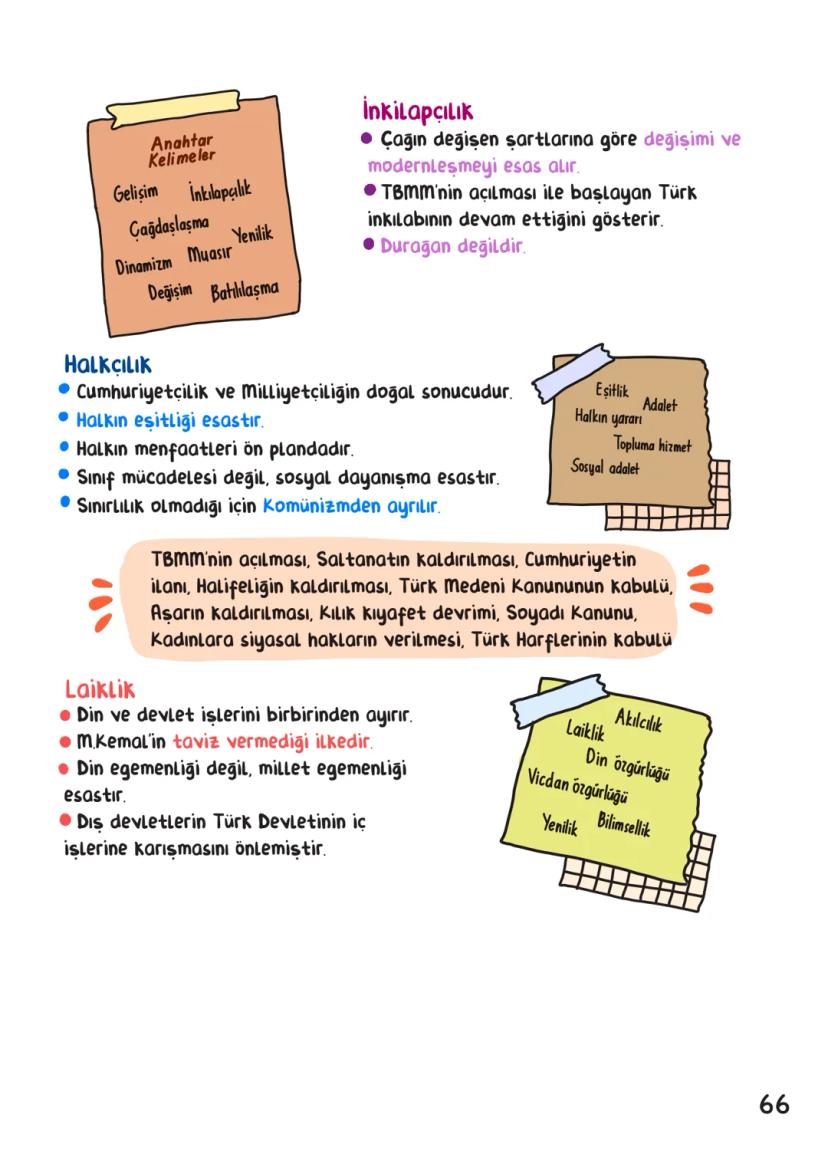 Anahtar
Kelimeler
Gelişim İnkılapçılık
Çağdaşlaşma
Yenilik
Dinamizm Muasır
Değişim Batılılaşma
İnkilapçılık
Çağın değişen şartlarına göre değişimi ve
modernleşmeyi esas alır.
TBMM'nin açılması ile başlayan Türk
inkılabının devam ettiğini gösterir.
Durağan değildir.
Halkçılık
Cumhuriyetçilik ve Milliyetçiliğin doğal sonucudur.
Halkın eşitliği esastır.
Halkın menfaatleri ön plandadır.
Sınıf mücadelesi değil, sosyal dayanışma esastır.
Sınırlılık olmadığı için Komünizmden ayrılır.
Eşitlik
Adalet
Halkın yararı
Topluma hizmet
Sosyal adalet
TBMM'nin açılması, Saltanatın kaldırılması, Cumhuriyetin
ilanı, Halifeliğin kaldırılması, Türk Medeni Kanununun kabulü,
Aşarın kaldırılması, Kılık kıyafet devrimi, Soyadı Kanunu,
Kadınlara siyasal hakların verilmesi, Türk Harflerinin kabulü
Laiklik
Din ve devlet işlerini birbirinden ayırır.
M.Kemal'in taviz vermediği ilkedir.
Din egemenliği değil, millet egemenliği
esastır.
Dış devletlerin Türk Devletinin iç
işlerine karışmasını önlemiştir.
Akılcılık
Laiklik
Din özgürlüğü
Vicdan özgürlüğü
Yenilik Bilimsellik
66